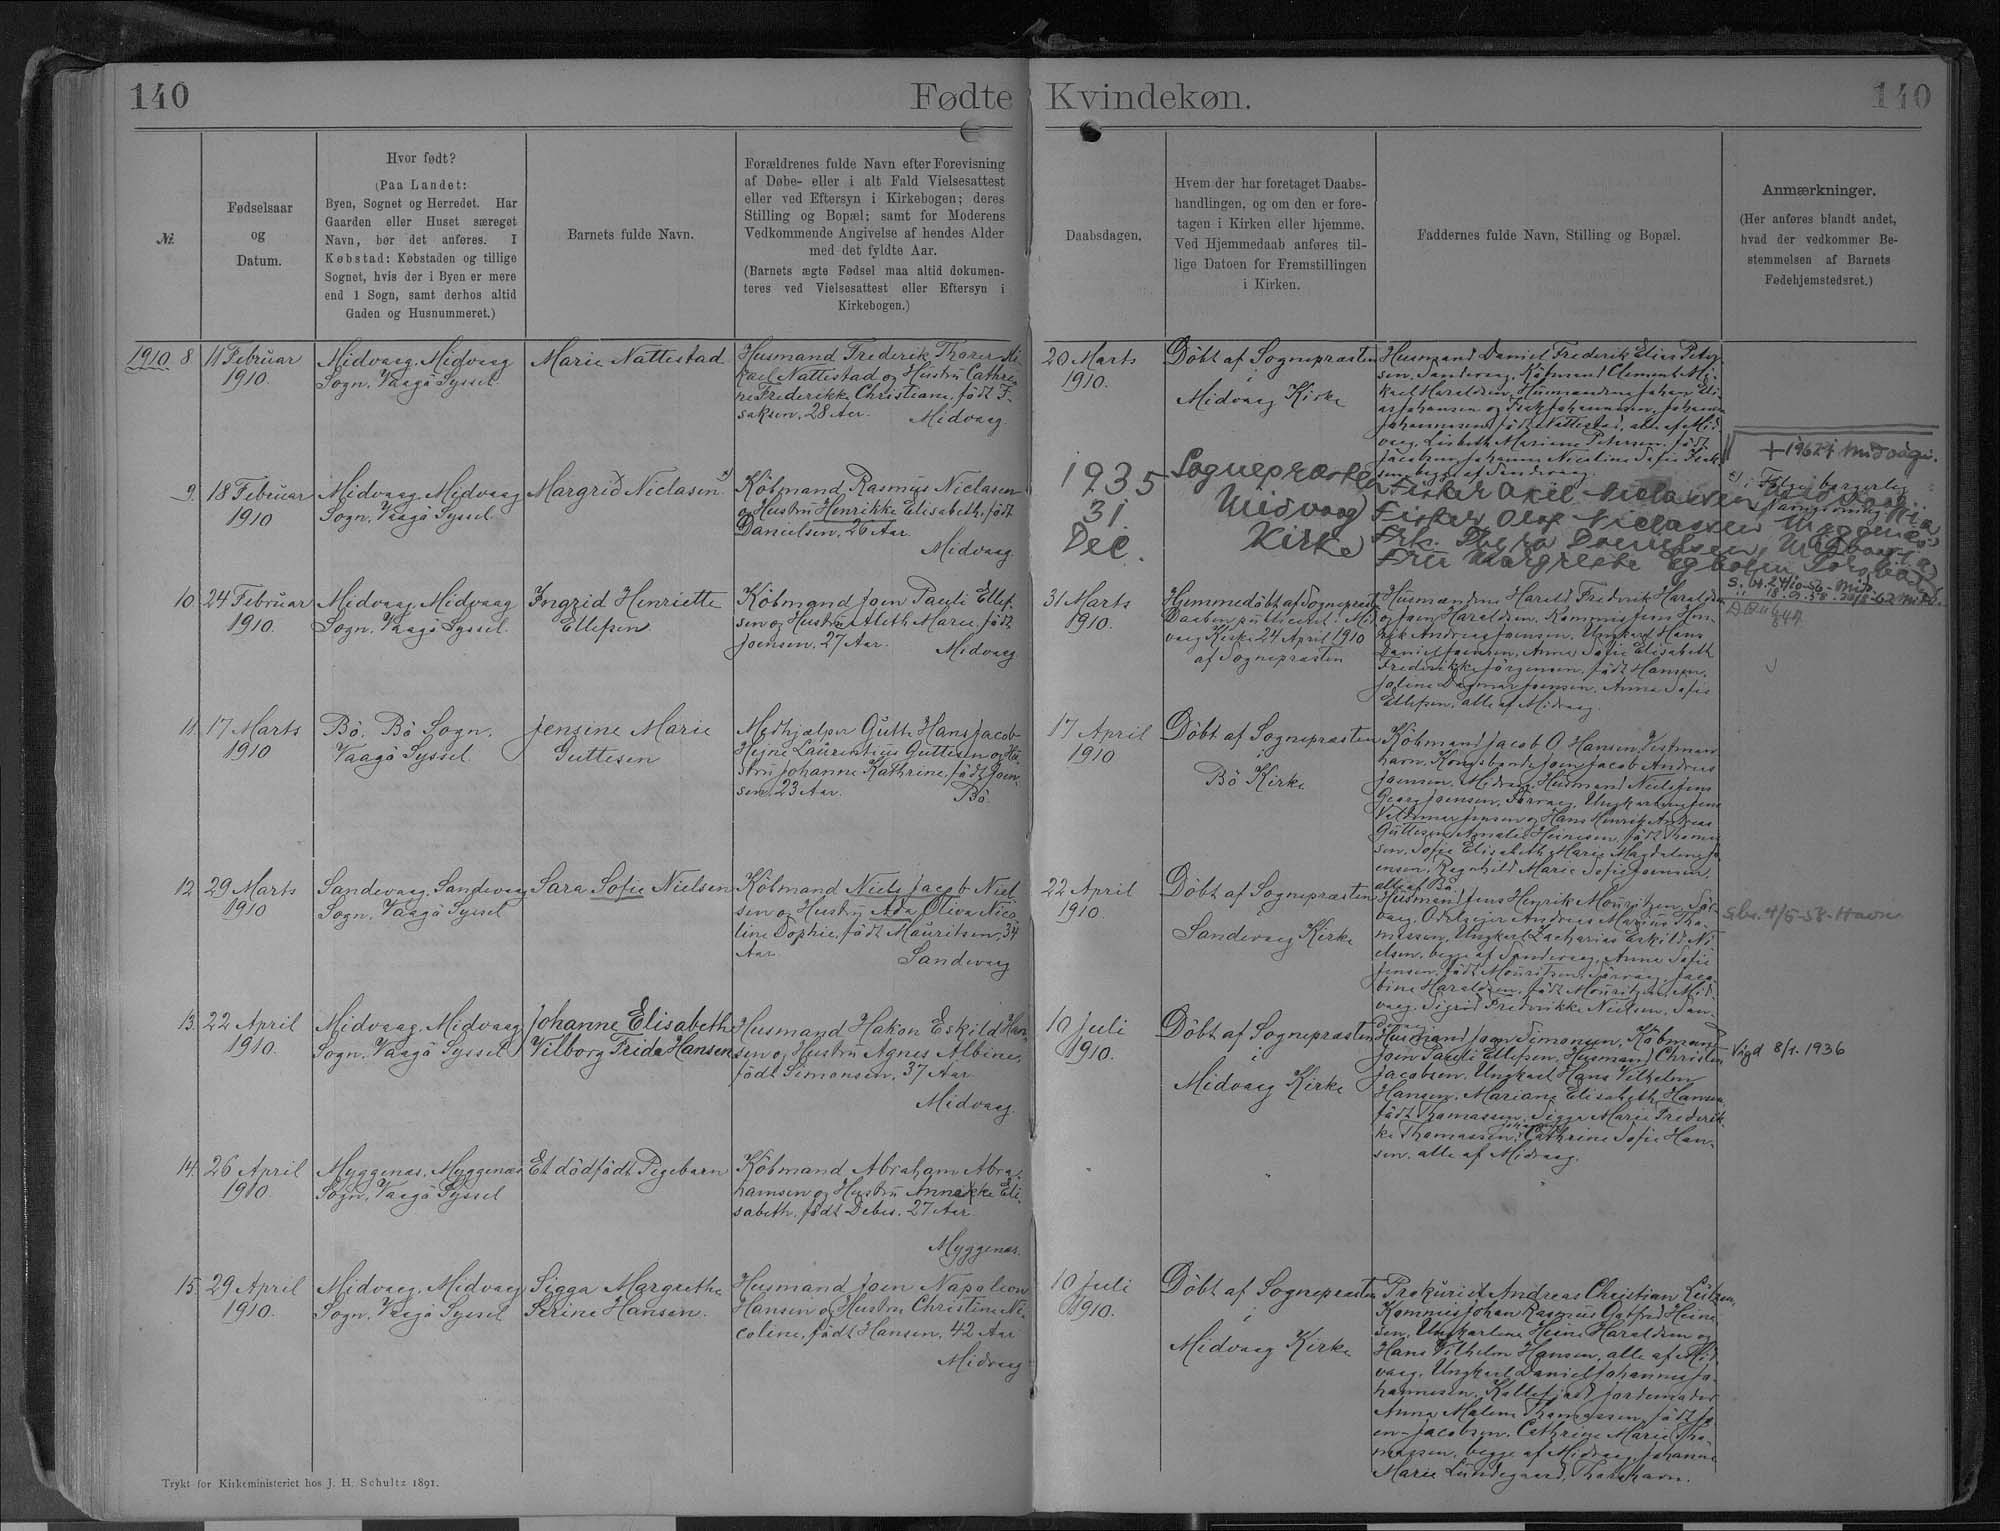 140
Fødte
Kvindekøn.
140
Nr.
Fødselsaar
og
Datum.
Hvor født?
(Paa Landet:
Byen, Sognet og Herredet. Har
Gaarden eller Huset særeget
Navn, bør det anføres. I
Købstad: Købstaden og tillige
Sognet, hvis der i Byen er mere
end 1 Sogn, samt derhos altid
Gaden og Husnummeret.)
Barnets fulde Navn.
Forældrenes fulde Navn efter Forevisning
af Døbe- eller i alt Fald Vielsesattest
eller ved Eftersyn i Kirkebogen; deres
Stilling og Bopæl; samt for Moderens
Vedkommende Angivelse af hendes Alder
med det fyldte Aar.
(Barnets ægte Fødsel maa altid dokumen-
teres ved Vielsesattest eller Eftersyn i
Kirkebogen.)
Daabsdagen.
Hvem der har foretaget Daabs-
handlingen, og om den er fore-
tagen i Kirken eller hjemme.
Ved Hjemmedaab anføres til-
lige Datoen for Fremstillingen
i Kirken.
Faddernes fulde Navn, Stilling og Bopæl.
Anmærkninger.
(Her anføres blandt andet,
hvad der vedkommer Be-
stemmelsen af Barnets
Fødehjemstedsret.)
1910. 8
11 Februar
1910.
Midvaag, Midvaag
Sogn, Vaagö Syssel.
Marie Nattestad
Husmand Frederik Thorer Mi-
kael Nattestad og Hustru Cathri-
ne Frederikke Christiane, født I-
saksen, 28 Aar.
Midvaag.
20 Marts
1910.
Döbt af Sognepræsten
i
Midvaag Kirke
Husmand Daniel Frederik Elias Peter-
sen, Sandevaag, Købmand Clement Mi-
kael Haraldsen, Husmændene Johan Eli-
as Johansen og Isak Johannesen, Johanne
Johannesen, født Nattestad, alle af Mid-
vaag, Lisbeth Mariane Petersen, født
Jacobsen, Johanne Nicoline Sofie Isak-
sen, begge af Sandevaag.
9.
18 Februar
1910
Midvaag, Midvaag
Sogn, Vaagö Syssel.
Margrid Niclasen
Köbmand Rasmus Niclasen
og Hustru Henrikke Elisabeth, født
Danielsen, 26 Aar.
Midvaag.
1935
31
Dec.
Sognepræsten
Midvaag
Kirke
Fisker Axel Niclasen
Fisker Olaf Niclassen
Frk. Thora Danielsen, Midvaag
Fru Margrethe
+ 1962 i Midvági.
Følge borgerlig
10.
24 Februar
1910.
Midvaag, Midvaag
Sogn, Vaagö Syssel.
Ingrid Henriette
Ellefsen
Köbmand Joen Pauli Ellef-
sen og Hustru Aleth Marie, født
Joensen, 27 Aar.
Midvaag
31 Marts
1910.
Hjemmedöbt af Sognepræsten
Daaben publiceret i Mid-
vaag Kirke 24 April 1910
af Sognepræsten
Husmændene Harald Frederik Haraldsen
og Joen Haraldsen, Kommis Jens Hen-
rik Andreas Joensen, Ungkarl Hans
Daniel Joensen, Anna Sofie Elisabeth
Frederikke Jörgensen, født Hansen,
Joline Dagmar Joensen, Anna Sofie
Ellefsen, alle af Midvaag.
11.
17 Marts
1910
Bö. Bö Sogn.
Vaagö Syssel.
Jensine Marie
Guttesen
Medhjælper Gutte Hans Jacob
Hejne Laurentius Guttesen og Hu-
stru Johanne Kathrine, født Joen-
sen, 23 Aar.
Bö.
17 April
1910
Döbt af Sognepræsten
i
Bö Kirke
Köbmand Jacob O. Hansen, Vestman-
havn, Kongsbonde Joen Jacob Andreas
Joensen, Midvaag, Husmand Niels Jens
Georg Joensen, Sörvaag, Ungkarlene Jens
Valdemar Jensen og Hans Henrik Andreas
Guttesen, Amalie Heinesen, født Thomas-
sen, Sofie Elisabeth Marie Magdalene Jo-
ensen, Regnhild Marie Sofie Joensen,
alle af Bö.
12.
29 Marts
1910
Sandevaag, Sandevaag
Sogn, Vaagö Syssel
Sara Sofie Nielsen
Köbmand Niels Jacob Niel-
sen og Hustru Ada Oliva Nico-
line Sophie, født Mauritsen, 34
Aar
Sandevaag
22 April
1910.
Döbt af Sognepræsten
i
Sandevaag Kirke
Husmand Jens Henrik Mouritzen, Sör-
vaag, Odelsejer Andreas Marius Tho-
massen, Ungkarl Zacharias Eskild Ni-
elsen, begge af Sandevaag, Anna Sofie
Jensen, født Mouritsen, Sörvaag, Jaco-
bine Haraldsen, født Mouritzen, Mid-
vaag, Sigrid Frederikke Nielsen, San-
devaag.
13.
22 April
1910.
Midvaag, Midvaag
Sogn, Vaagö Syssel
Johanne Elisabeth
Vilborg Frida Hansen
Husmand Hakon Eskild Han-
sen og Hustru Agnes Albine,
født Simonsen, 37 Aar
Midvaag.
10 Juli
1910.
Döbt af Sognepræsten
i
Midvaag Kirke
Husmand Joen Simonsen, Köbmand
Joen Pauli Ellefsen, Husmand Christen
Jacobsen, Ungkarl Hans Vilhelm
Hansen, Mariane Elisabeth Hansen,
født Thomassen, Sigga Marie Frederik-
ke Thomassen, Cathrine Sofie Han-
sen, alle af Midvaag.
Vigd 8/1. 1936
14.
26 April
1910.
Myggenæs, Myggenæs
Sogn, Vaagö Syssel
Et dödfödt Pigebarn
Köbmand Abraham Abra-
hamsen og Hustru Annikke Eli-
sabeth, født Debes, 27 Aar.
Myggenæs.
15.
29 April
1910.
Midvaag, Midvaag
Sogn, Vaagö Syssel
Sigga Margrethe
Perine Hansen.
Husmand Joen Napoleon
Hansen og Hustru Christine Ni-
coline, født Hansen, 42 Aar
Midvaag
10 Juli
1910.
Döbt af Sognepræsten
i
Midvaag Kirke
Prokurist Andreas Christian Lützen,
Kommis Johan Rasmus Gotfred Heine-
sen, Ungkarlene Heine Haraldsen og
Hans Vilhelm Hansen, alle af Mid-
vaag, Ungkarl Daniel Johannes Jo-
hannesen, Kollefjord, Jordemoder
Anna Malene Thomassen, født Jo-
en-Jacobsen, Cathrine Marie Tho-
massen, begge af Midvaag, Johanne
Marie Lundegaard, Thorshavn.
Trykt for Kirkeministeriet hos J. H. Schultz 1891.